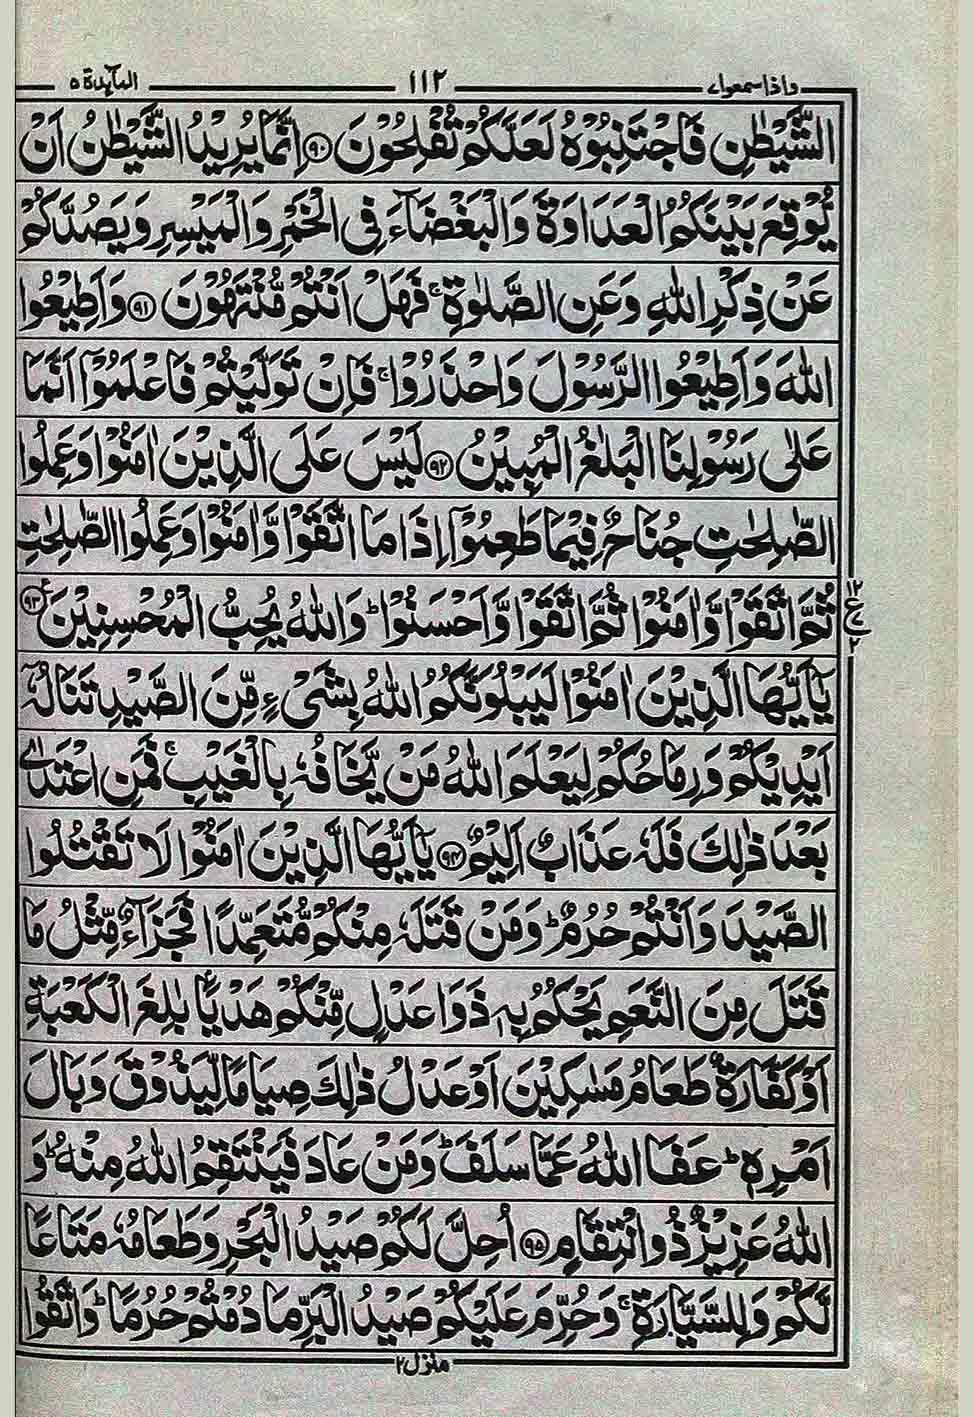 واذا سمعوا ۷ ۱۱۲ المآئدة ۵
الشَّيْطٰنِ فَاجْتَنِبُوْهُ لَعَلَّكُمْ تُفْلِحُوْنَ ﴿۹۰﴾ اِنَّمَا يُرِيْدُ الشَّيْطٰنُ اَنْ
يُّوْقِعَ بَيْنَكُمُ الْعَدَاوَةَ وَالْبَغْضَآءَ فِى الْخَمْرِ وَالْمَيْسِرِ وَيَصُدَّكُمْ
عَنْ ذِكْرِ اللّٰهِ وَعَنِ الصَّلٰوةِ ۚ فَهَلْ اَنْتُمْ مُّنْتَهُوْنَ ﴿۹۱﴾ وَاَطِيْعُوا
اللّٰهَ وَاَطِيْعُوا الرَّسُوْلَ وَاحْذَرُوْا ۚ فَاِنْ تَوَلَّيْتُمْ فَاعْلَمُوْۤا اَنَّمَا
عَلٰى رَسُوْلِنَا الْبَلٰغُ الْمُبِيْنُ ﴿۹۲﴾ لَيْسَ عَلَى الَّذِيْنَ اٰمَنُوْا وَعَمِلُوا
الصّٰلِحٰتِ جُنَاحٌ فِيْمَا طَعِمُوْۤا اِذَا مَا اتَّقَوْا وَّاٰمَنُوْا وَعَمِلُوا الصّٰلِحٰتِ
ثُمَّ اتَّقَوْا وَّاٰمَنُوْا ثُمَّ اتَّقَوْا وَّاَحْسَنُوْا ؕ وَاللّٰهُ يُحِبُّ الْمُحْسِنِيْنَ ﴿۹۳﴾ ع
۱۲ ع ۷ ۲
يٰۤاَيُّهَا الَّذِيْنَ اٰمَنُوْا لَيَبْلُوَنَّكُمُ اللّٰهُ بِشَىْءٍ مِّنَ الصَّيْدِ تَنَالُهٗۤ
اَيْدِيْكُمْ وَرِمَاحُكُمْ لِيَعْلَمَ اللّٰهُ مَنْ يَّخَافُهٗ بِالْغَيْبِ ۚ فَمَنِ اعْتَدٰى
بَعْدَ ذٰلِكَ فَلَهٗ عَذَابٌ اَلِيْمٌ ﴿۹۴﴾ يٰۤاَيُّهَا الَّذِيْنَ اٰمَنُوْا لَا تَقْتُلُوا
الصَّيْدَ وَاَنْتُمْ حُرُمٌ ؕ وَمَنْ قَتَلَهٗ مِنْكُمْ مُّتَعَمِّدًا فَجَزَآءٌ مِّثْلُ مَا
قَتَلَ مِنَ النَّعَمِ يَحْكُمُ بِهٖ ذَوَا عَدْلٍ مِّنْكُمْ هَدْيًاۢ بٰلِغَ الْكَعْبَةِ
اَوْ كَفَّارَةٌ طَعَامُ مَسٰكِيْنَ اَوْ عَدْلُ ذٰلِكَ صِيَامًا لِّيَذُوْقَ وَبَالَ
اَمْرِهٖ ؕ عَفَا اللّٰهُ عَمَّا سَلَفَ ؕ وَمَنْ عَادَ فَيَنْتَقِمُ اللّٰهُ مِنْهُ ؕ وَ
اللّٰهُ عَزِيْزٌ ذُو انْتِقَامٍ ﴿۹۵﴾ اُحِلَّ لَكُمْ صَيْدُ الْبَحْرِ وَطَعَامُهٗ مَتَاعًا
لَّكُمْ وَلِلسَّيَّارَةِ ۚ وَحُرِّمَ عَلَيْكُمْ صَيْدُ الْبَرِّ مَا دُمْتُمْ حُرُمًا ؕ وَاتَّقُوا
منزل ۲